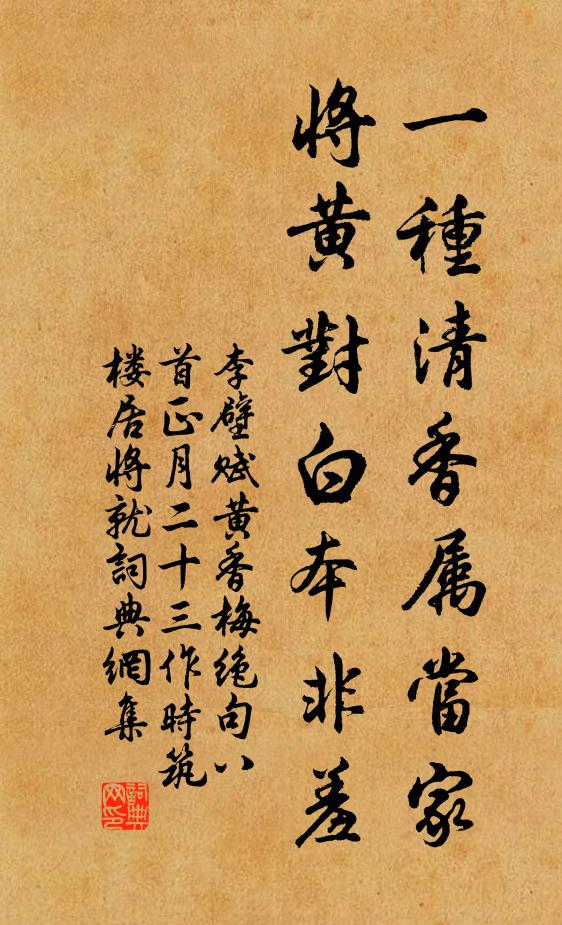 一種清香属當家
將黄對白本非差
李壁赋黄香梅绝句八
首正月二十三作時筑
楼居將就詞典網集
詞典网印